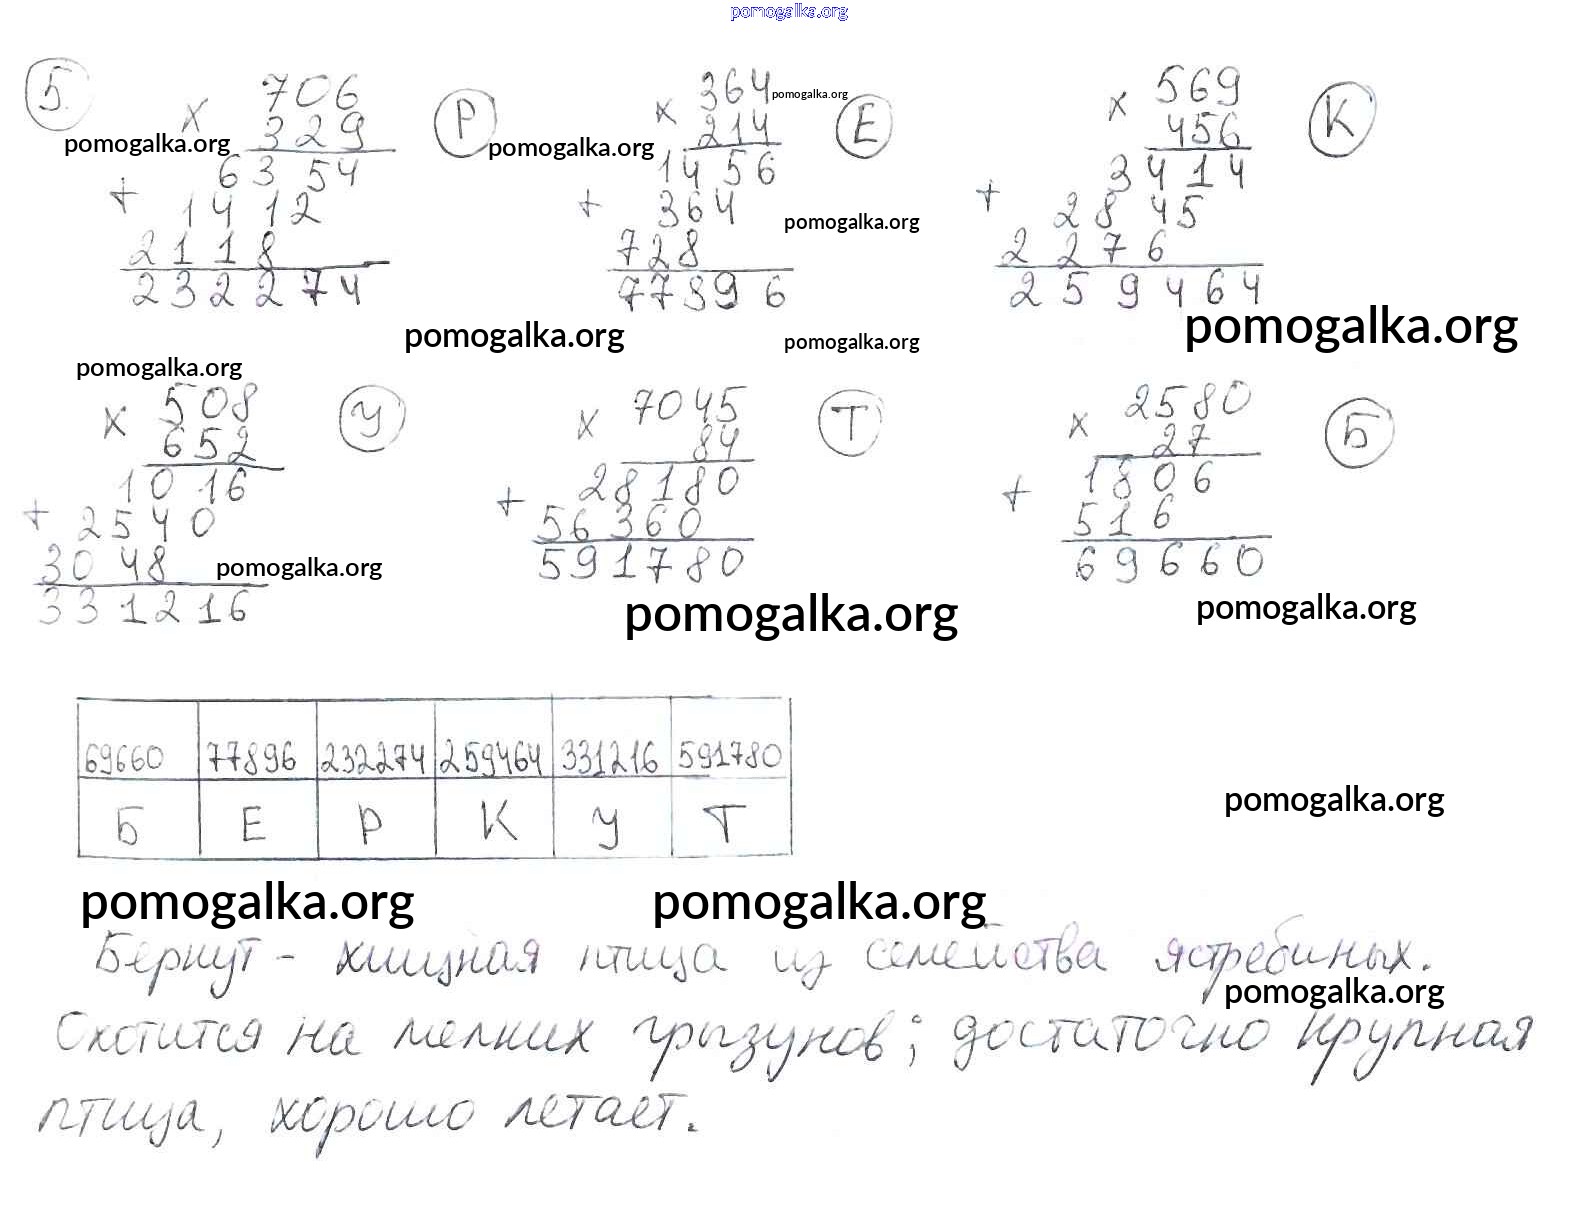 pomogalka.org
5.
706 Р 364 pomogalka.org Е 569 К
× 329 × 214 × 456
pomogalka.org pomogalka.org
6354 1456 3414
+ 1412 + 364 + 2845
pomogalka.org
2118 728 2276
232274 77896 259464
pomogalka.org pomogalka.org pomogalka.org
pomogalka.org
508 У 7045 Т 2580 Б
× 652 × 84 × 27
1016 28180 1806
+ 2540 + 56360 + 516
3048 591780 69660
pomogalka.org
331216
pomogalka.org pomogalka.org
69660 77896 232274 259464 331216 591780
pomogalka.org
Б Е Р К У Т
pomogalka.org pomogalka.org
Беркут - хищная птица из семейства ястребиных.
pomogalka.org
Охотится на мелких грызунов; достаточно крупная
птица, хорошо летает.